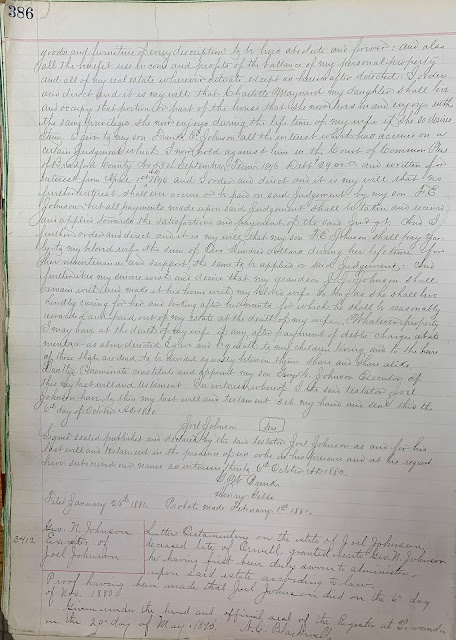 386
goods and furniture of every description to be hers absolute and forever: and also
all the benefit use income and profits of the ballance of my personal property
and all of my real estate wherever situate except as herein after directed: I order
and direct and it is my will that Charlotte Maynard my daughter shall live
and occupy that portion or part of the house that she now lives in and enjoys with
the same privilege she now enjoys during the life time of my wife if she so desires
Item I give to my son Frank P. Johnson all the interest which has accrued on a
certain Judgement which I now hold against him in the Court of Common Pleas
of Bradford County No September Term Debt and written for
Interest from April 1st and I order and direct and it is my will that no
further interest shall ever accrue or be paid on said Judgement by my son F. P.
Johnson but all payments made upon said Judgement shall be taken and received
and applied towards the satisfaction and payment of the said Judgt. And I
further order and direct and it is my will that my son F. P. Johnson shall pay
to my beloved wife the sum of One Hundred dollars during her life time for
her maintenance and support the same to be applied on said Judgement: And
further it is my desire wish and desire that my grandson Johnson shall
remain with and make at his home with my beloved wife so long as she shall live
kindly caring for her and looking after her wants for which he shall be reasonably
rewarded and paid out of my estate at the death of my wife. Whatever property
I may have at the death of my wife if any after payment of debts charges
as above directed I give and bequeath to my children living and to the heirs
of those that are dead to be divided equally between them share and share alike.
Lastly I nominate constitute and appoint my son Geo. N. Johnson Executor of
this my last will and testament. In witness whereof I the said testator Joel
Johnson have to this my last will and testament set my hand and seal this the
6th day of October AD 1880.
Joel Johnson
Signed sealed published and declared by the said testator Joel Johnson as and for his
last will and testament in the presence of us who in his presence and at his request
have subscribed our names as witnesses this 6th October AD 1880.
Henry Gibbs
Filed January 26th 1881. Probate made February 1st 1881.
3412
Geo. N. Johnson
Executor of
Joel Johnson
Letters Testamentary on the estate of Joel Johnson,
deceased late of Orwell, granted unto Geo. N. Johnson
he having first been duly sworn to administer
upon said estate according to law.
Proof having been made that Joel Johnson died on the 6th day
of Nov. 1880.
Given under the hand and official seal of the Register at Towanda
on the 20th day of May